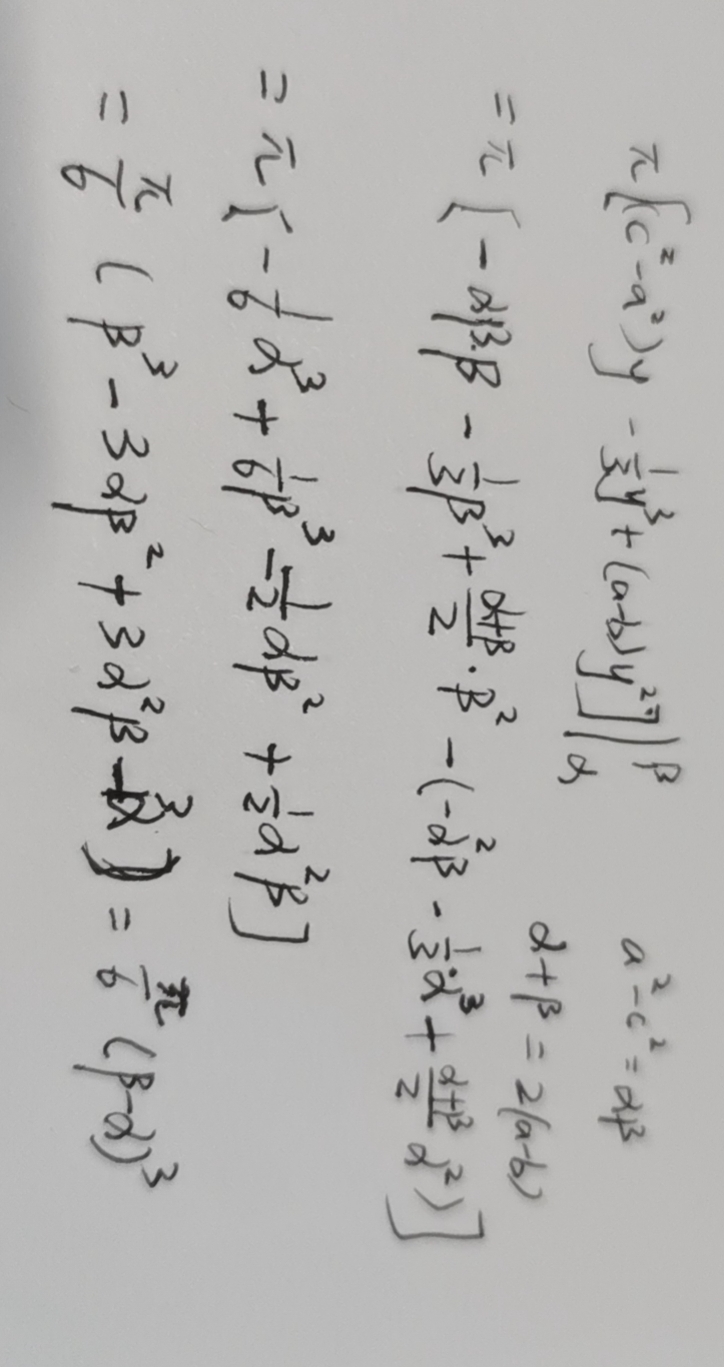 π[(c²-a²)y - 1/3 y³ + (a-b)y²]|_α^β   a²-c² = αβ
α+β = 2(a-b)
= π[-αβ·β - 1/3 β³ + (α+β)/2 · β² - (-α²β - 1/3 α³ + (α+β)/2 α²)]
= π[-1/6 α³ + 1/6 β³ - 1/2 αβ² + 1/2 α²β]
= π/6 (β³ - 3αβ² + 3α²β - α³) = π/6 (β-α)³